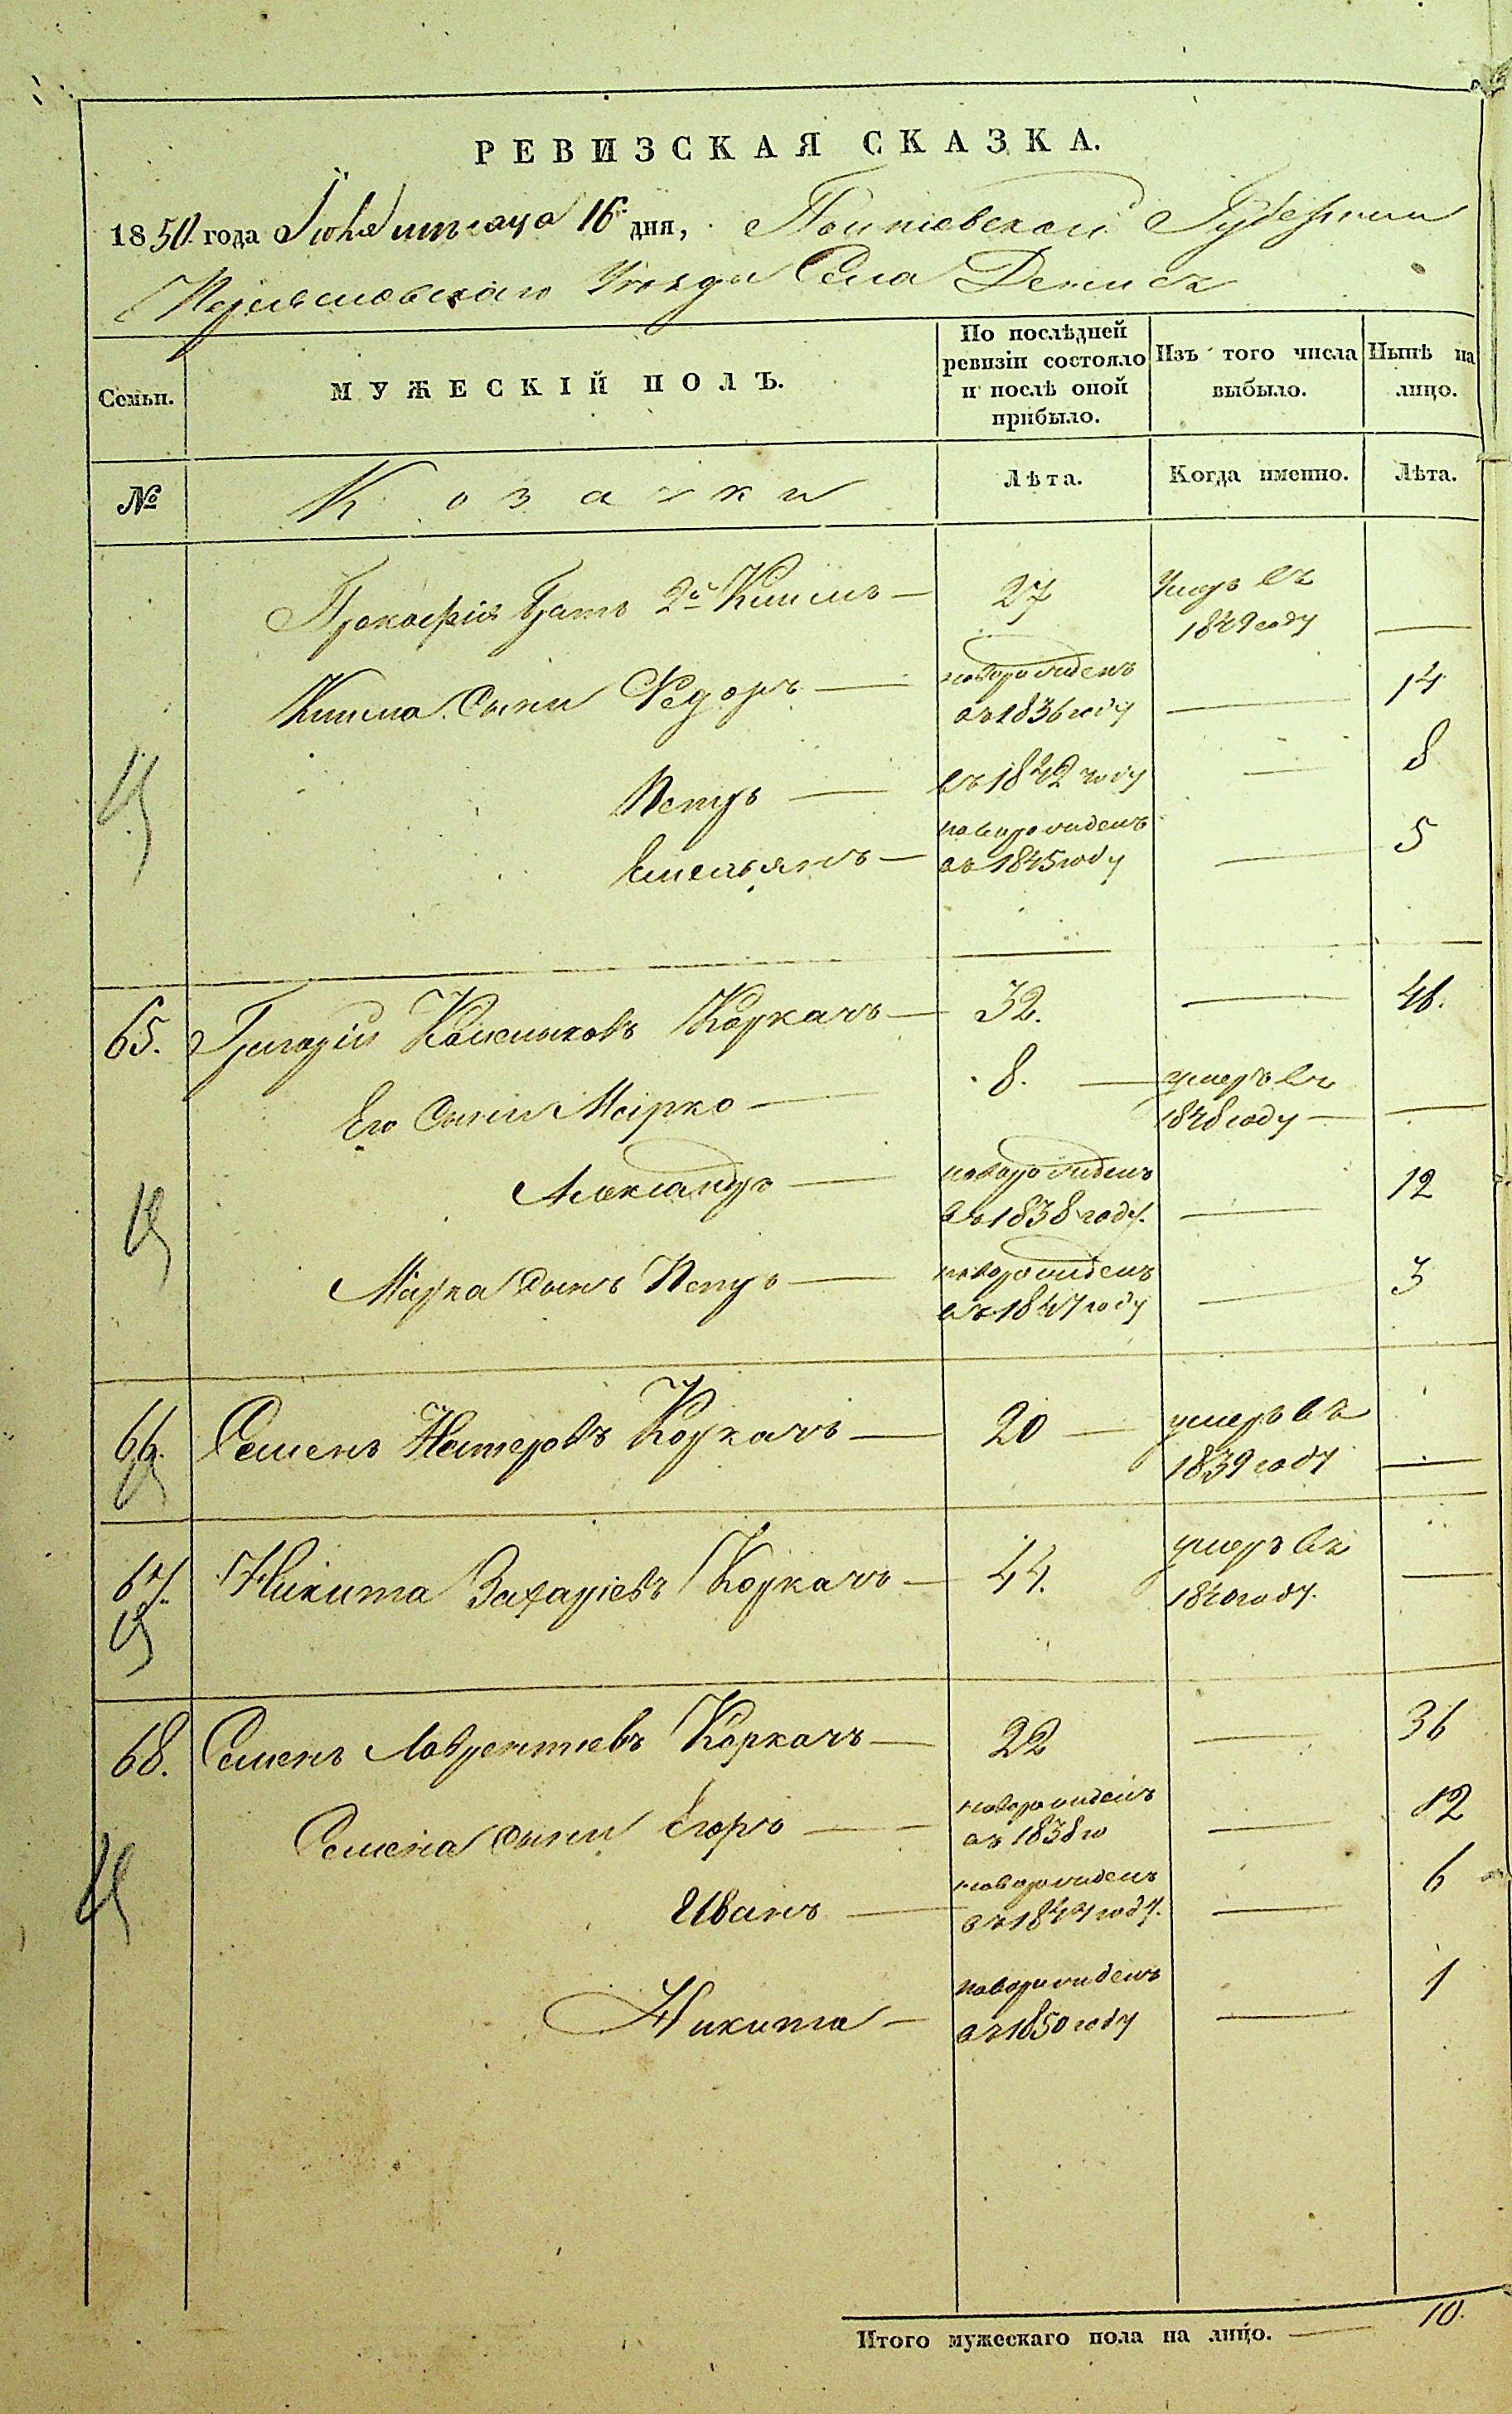 РЕВИЗСКАЯ СКАЗКА.
1850. года Июня месяца 16 дня, Полтавской Губернии
Переяславского Уезда Села Денисъ
Семьи.
МУЖЕСКІЙ ПОЛЪ.
По послѣдней ревизіи состояло и послѣ оной прибыло.
Изъ того числа выбыло.
Нынѣ на лицо.
№
Козаки
Лѣта.
Когда именно.
Лѣта.
Прокофія братъ 2й — 27 Умеръ въ
1849 году —
сыни Федоръ — новорожденъ
въ 1836 году — 14
Петръ — въ 1842 году — 8
Емельянъ — новорожденъ
въ 1845 году — 5
65. Григорій Коркачъ — 32. — 46.
Его Сыни Марко — 8. — умеръ въ
1848 году — —
Александръ — новорожденъ
въ 1838 году. — 12
Марка сынъ Петръ — новорожденъ
въ 1847 году — 3
66. Семенъ Нестеровъ Коркачъ — 20 — умеръ въ
1839 году —
67. Никита Захаріевъ Коркачъ — 44. умеръ въ
1840 году. —
68. Семенъ Лаврентіевъ Коркачъ — 22 — 36
Семена сыни Егоръ — новорожденъ
въ 1838 го — 12
Иванъ — новорожденъ
въ 1844 году. — 6
Никита — новорожденъ
въ 1850 году — 1
Итого мужескаго пола на лицо. — 10.